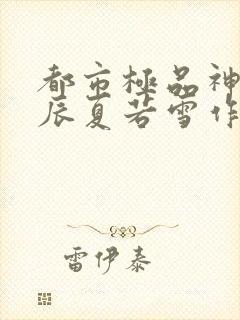 都市極品神
辰夏若雪作
雷伊泰